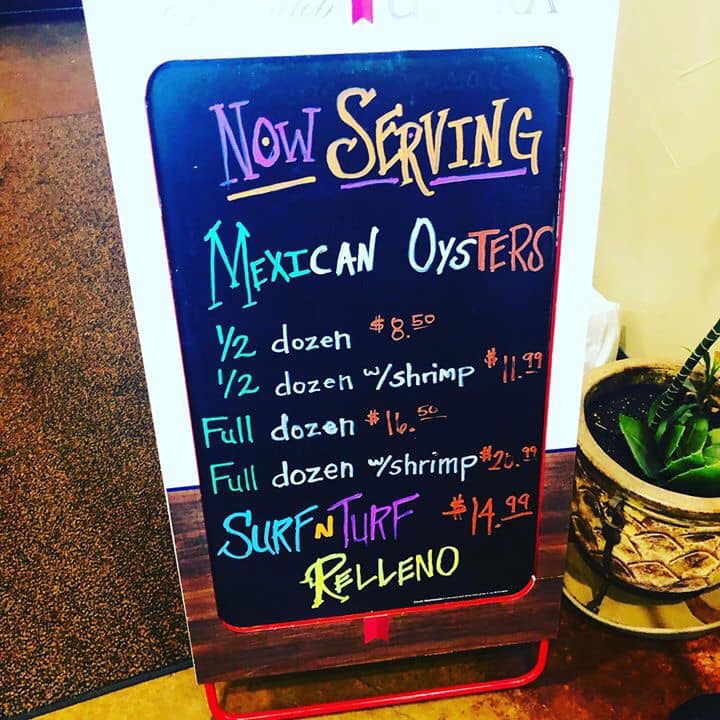 NOW SERVING
MEXICAN OYSTERS
1/2 dozen $8.50
1/2 dozen w/shrimp $11.99
Full dozen $16.50
Full dozen w/shrimp $20.99
SURF N TURF $14.99
RELLENO